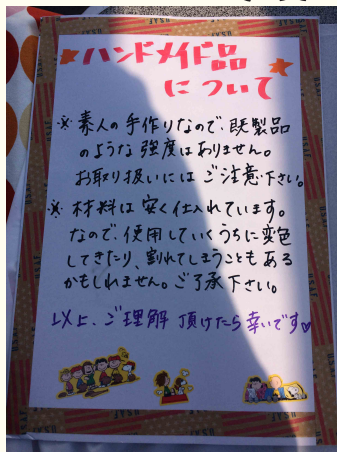 ハンドメイド品
について
※素人の手作りなので、既製品
のような強度はありません。
お取り扱いにはご注意下さい。
※材料は安く仕入れています。
なので、使用していくうちに変色
してきたり、割れてしまうこともある
かもしれません。ご了承下さい。
以上、ご理解頂けたら幸いです♡